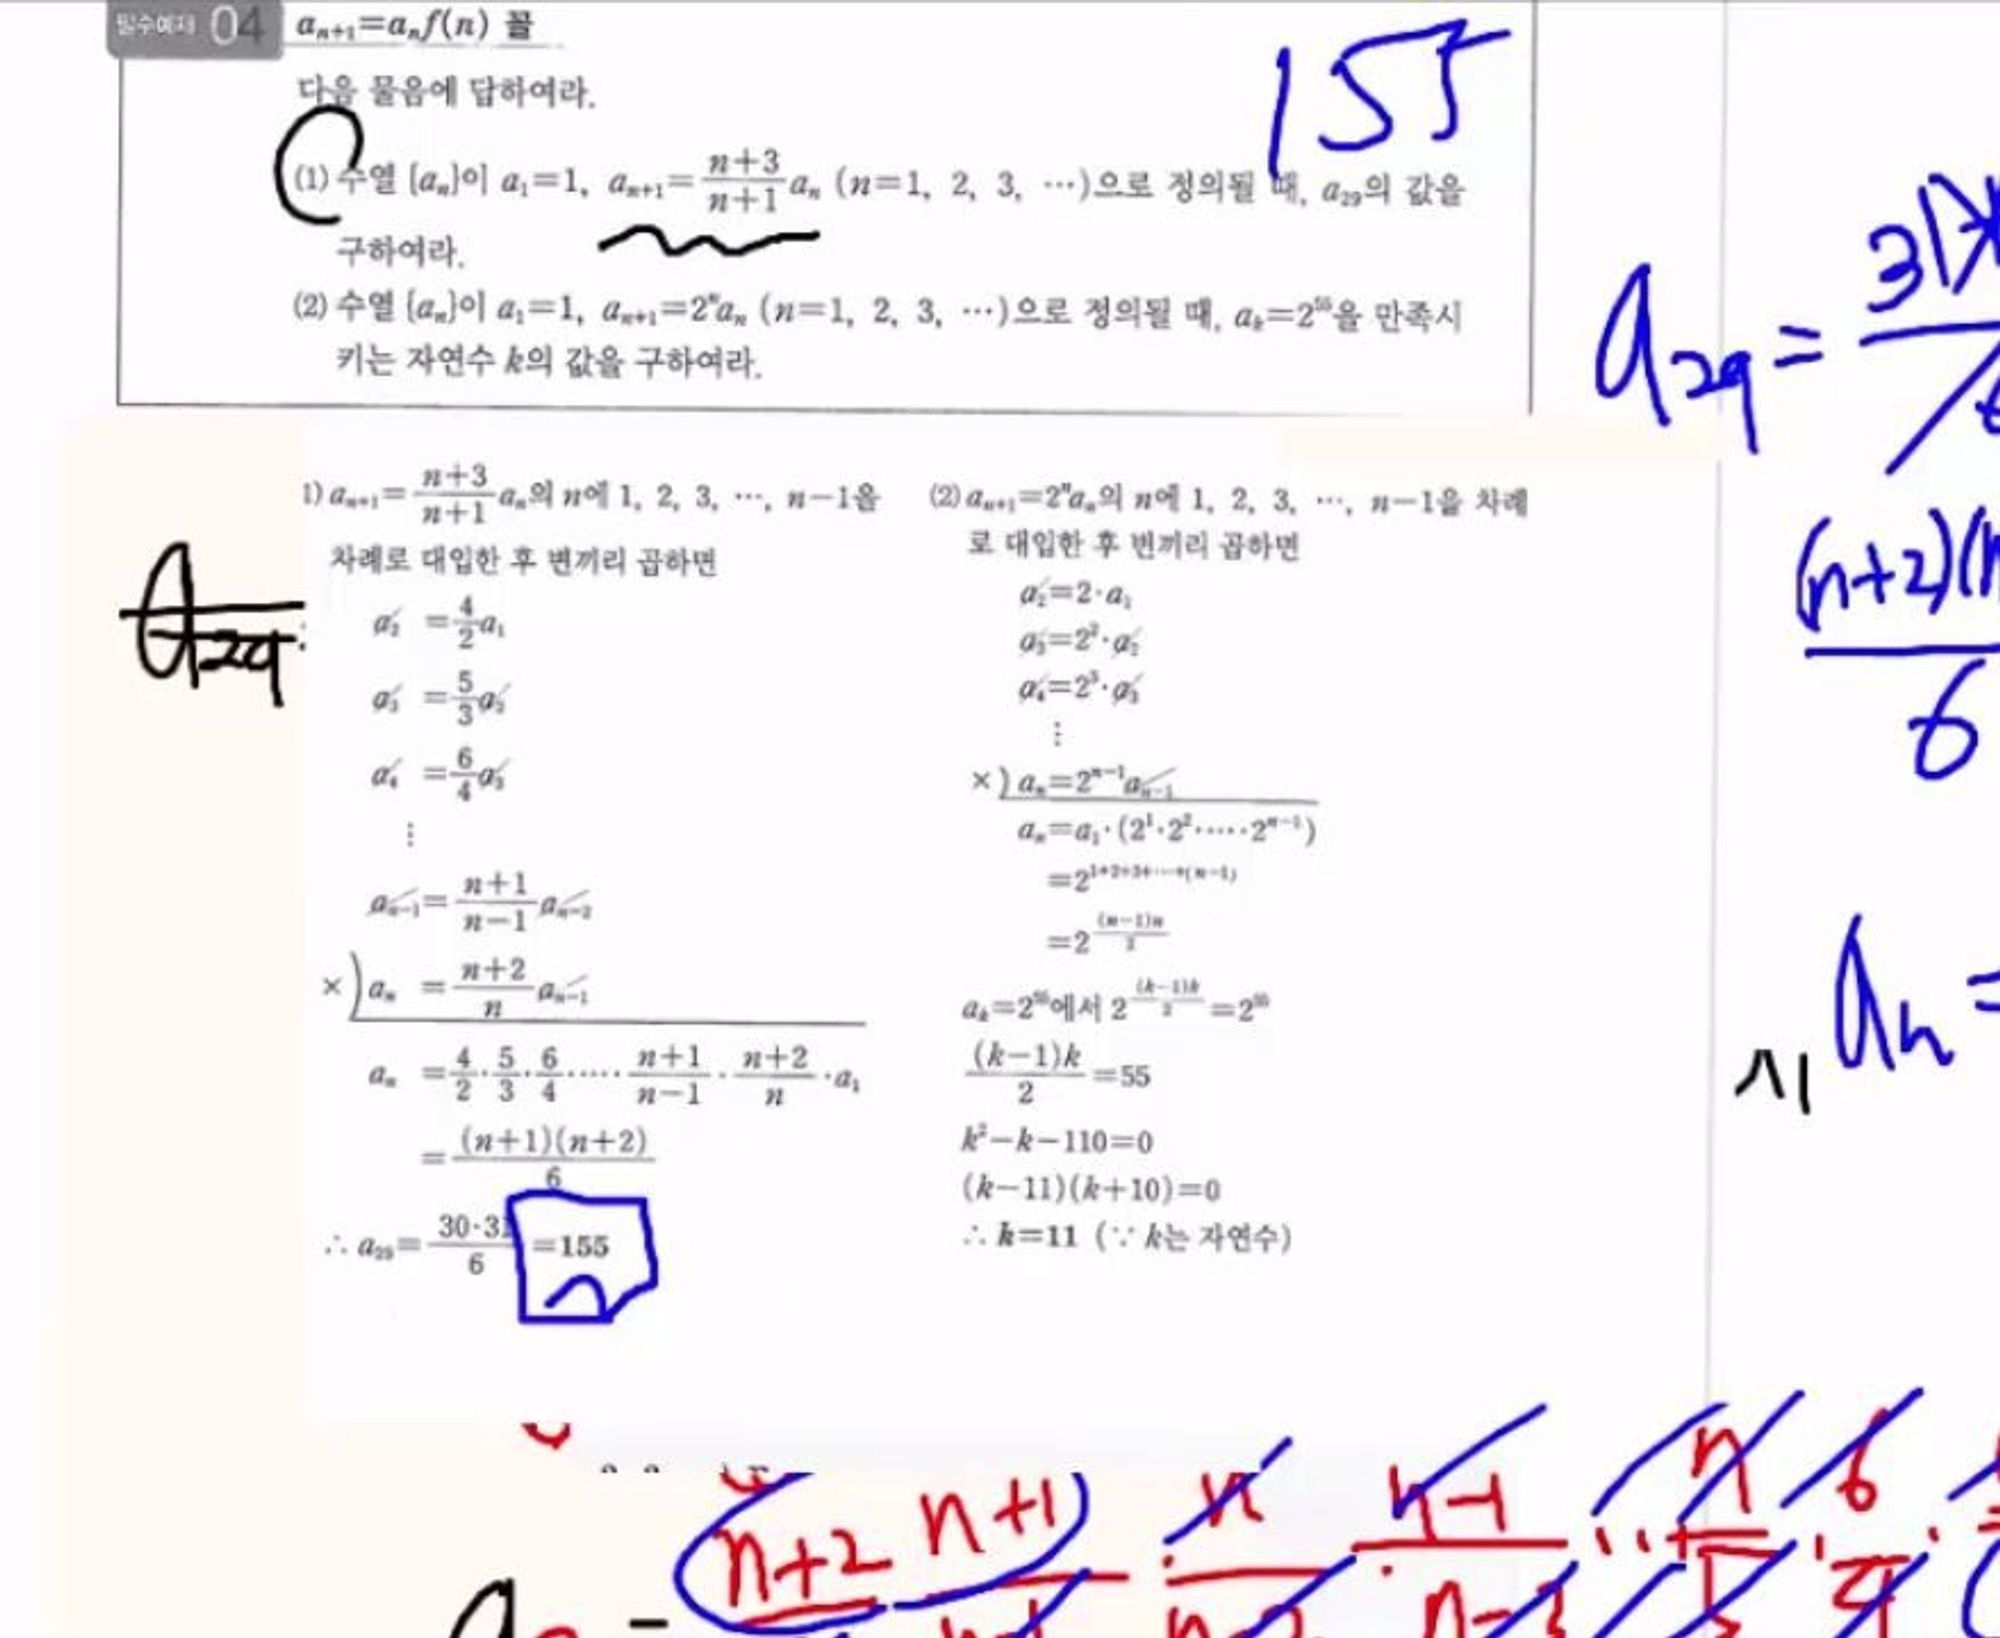 필수예제 04 aₙ₊₁=aₙf(n) 꼴
다음 물음에 답하여라.
155
(1) 수열 {aₙ}이 a₁=1, aₙ₊₁=(n+3)/(n+1) aₙ (n=1, 2, 3, ⋯)으로 정의될 때, a₂₉의 값을
구하여라.
(2) 수열 {aₙ}이 a₁=1, aₙ₊₁=2ⁿaₙ (n=1, 2, 3, ⋯)으로 정의될 때, aₖ=2⁵⁵을 만족시
키는 자연수 k의 값을 구하여라.
a₂₉=
31
(n+2)(
6
aₙ=
시
a₂₉
1) aₙ₊₁=(n+3)/(n+1) aₙ의 n에 1, 2, 3, ⋯, n−1을
차례로 대입한 후 변끼리 곱하면
a₂=4/2 a₁
a₃=5/3 a₂
a₄=6/4 a₃
⋮
aₙ₋₁=(n+1)/(n−1) aₙ₋₂
×) aₙ=(n+2)/n aₙ₋₁
aₙ=4/2·5/3·6/4·⋯·(n+1)/(n−1)·(n+2)/n·a₁
=(n+1)(n+2)/6
∴ a₂₉=30·31/6=155
(2) aₙ₊₁=2ⁿaₙ의 n에 1, 2, 3, ⋯, n−1을 차례
로 대입한 후 변끼리 곱하면
a₂=2·a₁
a₃=2²·a₂
a₄=2³·a₃
⋮
×) aₙ=2ⁿ⁻¹aₙ₋₁
aₙ=a₁·(2¹·2²·⋯·2ⁿ⁻¹)
=2^(1+2+3+⋯+(n−1))
=2^((n−1)n/2)
aₖ=2⁵⁵에서 2^((k−1)k/2)=2⁵⁵
(k−1)k/2=55
k²−k−110=0
(k−11)(k+10)=0
∴ k=11 (∵ k는 자연수)
n+2 n+1 · n · n-1 ⋯ 6